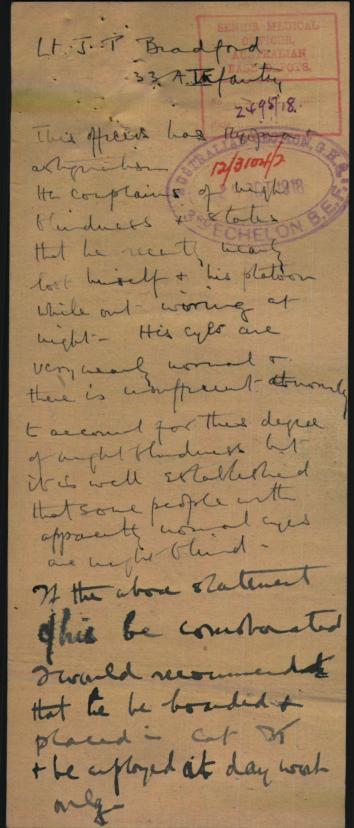 Lt. J. T. Bradford
33 A Infantry
SENIOR MEDICAL
OFFICER,
AUSTRALIAN
BASE DEPOTS.
2495/18.
This officer has
astigmatism
He complains of night
blindness & states
that he recently nearly
lost himself & his platoon
while out wiring at
night - His eyes are
very nearly normal &
there is insufficient abnormality
to account for this degree
of night blindness but
it is well established
that some people with
apparently normal eyes
are night blind -
If the above statement
of his be corroborated
I would recommend
that he be boarded &
placed in Cat
& be employed at day work
only
AUSTRALIAN SECTION, G.H.Q.
12/3104/2
1918
3RD ECHELON B.E.F.